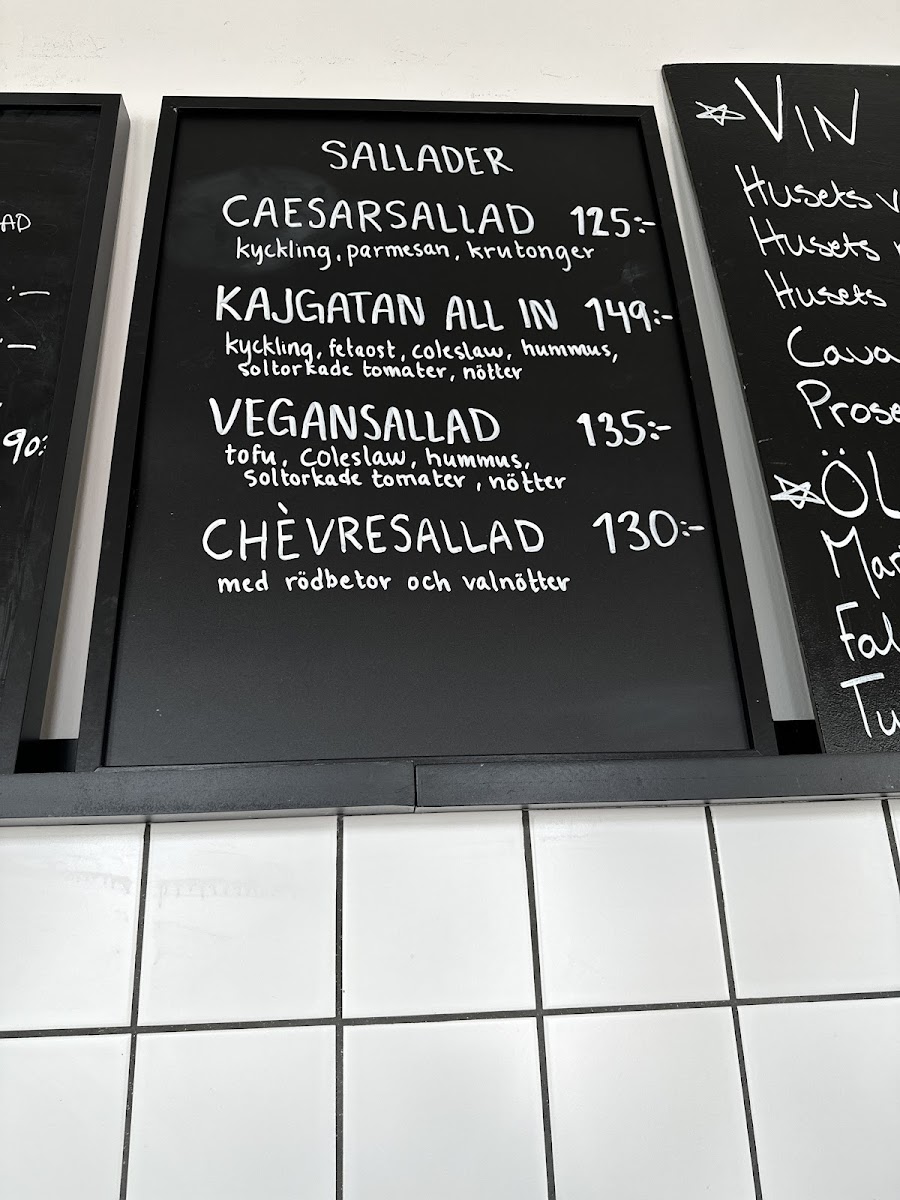 AD
:-
:-
90:
SALLADER
CAESARSALLAD 125:-
kyckling, parmesan, krutonger
KAJGATAN ALL IN 149:-
kyckling, fetaost, coleslaw, hummus,
soltorkade tomater, nötter
VEGANSALLAD 135:-
tofu, coleslaw, hummus,
soltorkade tomater, nötter
CHÈVRESALLAD 130:-
med rödbetor och valnötter
VIN
Husets v
Husets
Husets
Cava
Prose
ÖL
Mar
Fal
Tu